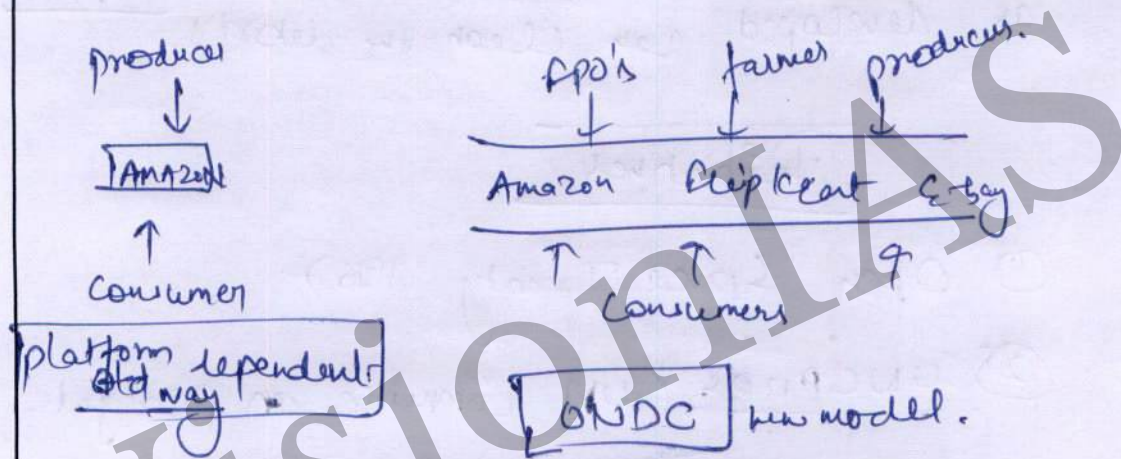 producer
AMAZON
Consumer
platform dependent
old way
FPO's farmer producers.
Amazon Flipkart E-bay
Consumers
ONDC new model.
VisionIAS